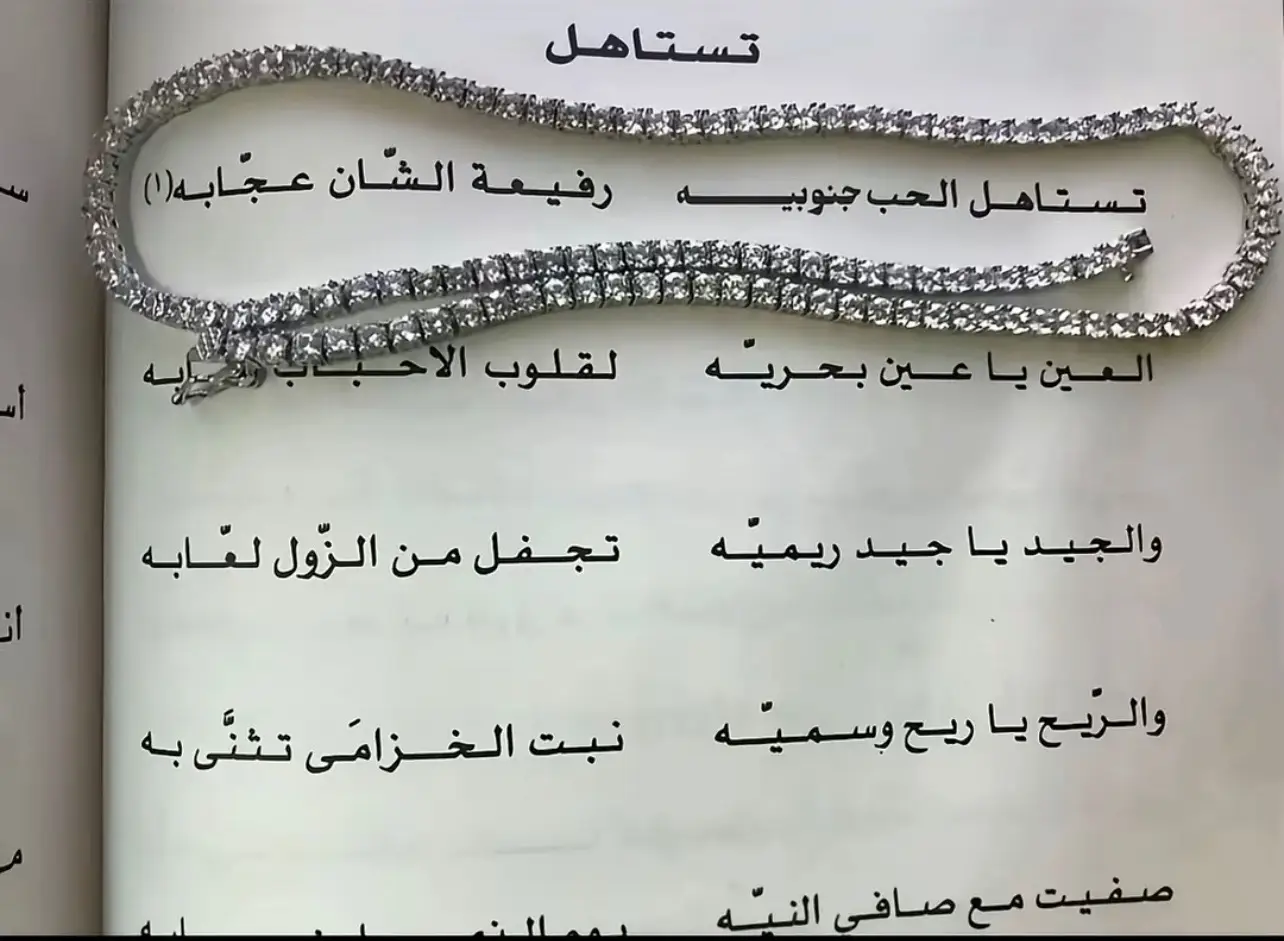 تستاهل
تستاهل الحب جنوبيه رفيعة الشّان عجّابه(١)
العين يا عين بحريّه لقلوب الاحباب
والجيد يا جيد ريميّه تجفل من الزّول لعّابه
والرّيح يا ريح وسميّه نبت الخزامَى تثنَّى به
صفيت مع صافي النيّه